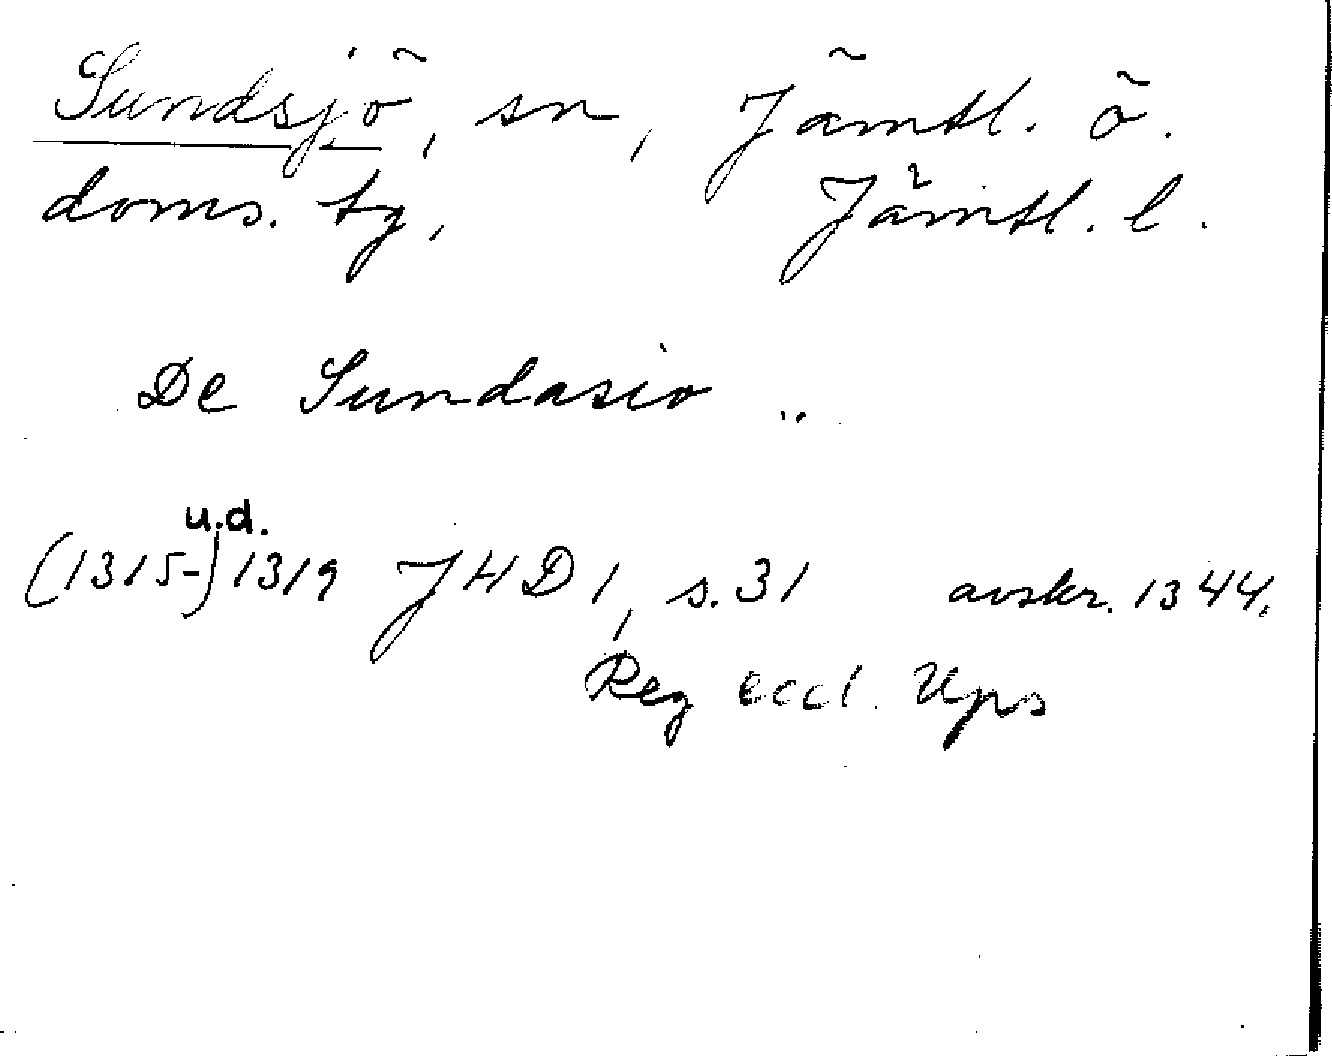 Sundsjö, sn, Jämtl. ö.
doms. tg, Jämtl. l.
De Sundasio ..
u.d.
(1315-) 1319 JHD 1, s. 31 avskr. 1344.
Reg eccl. Ups